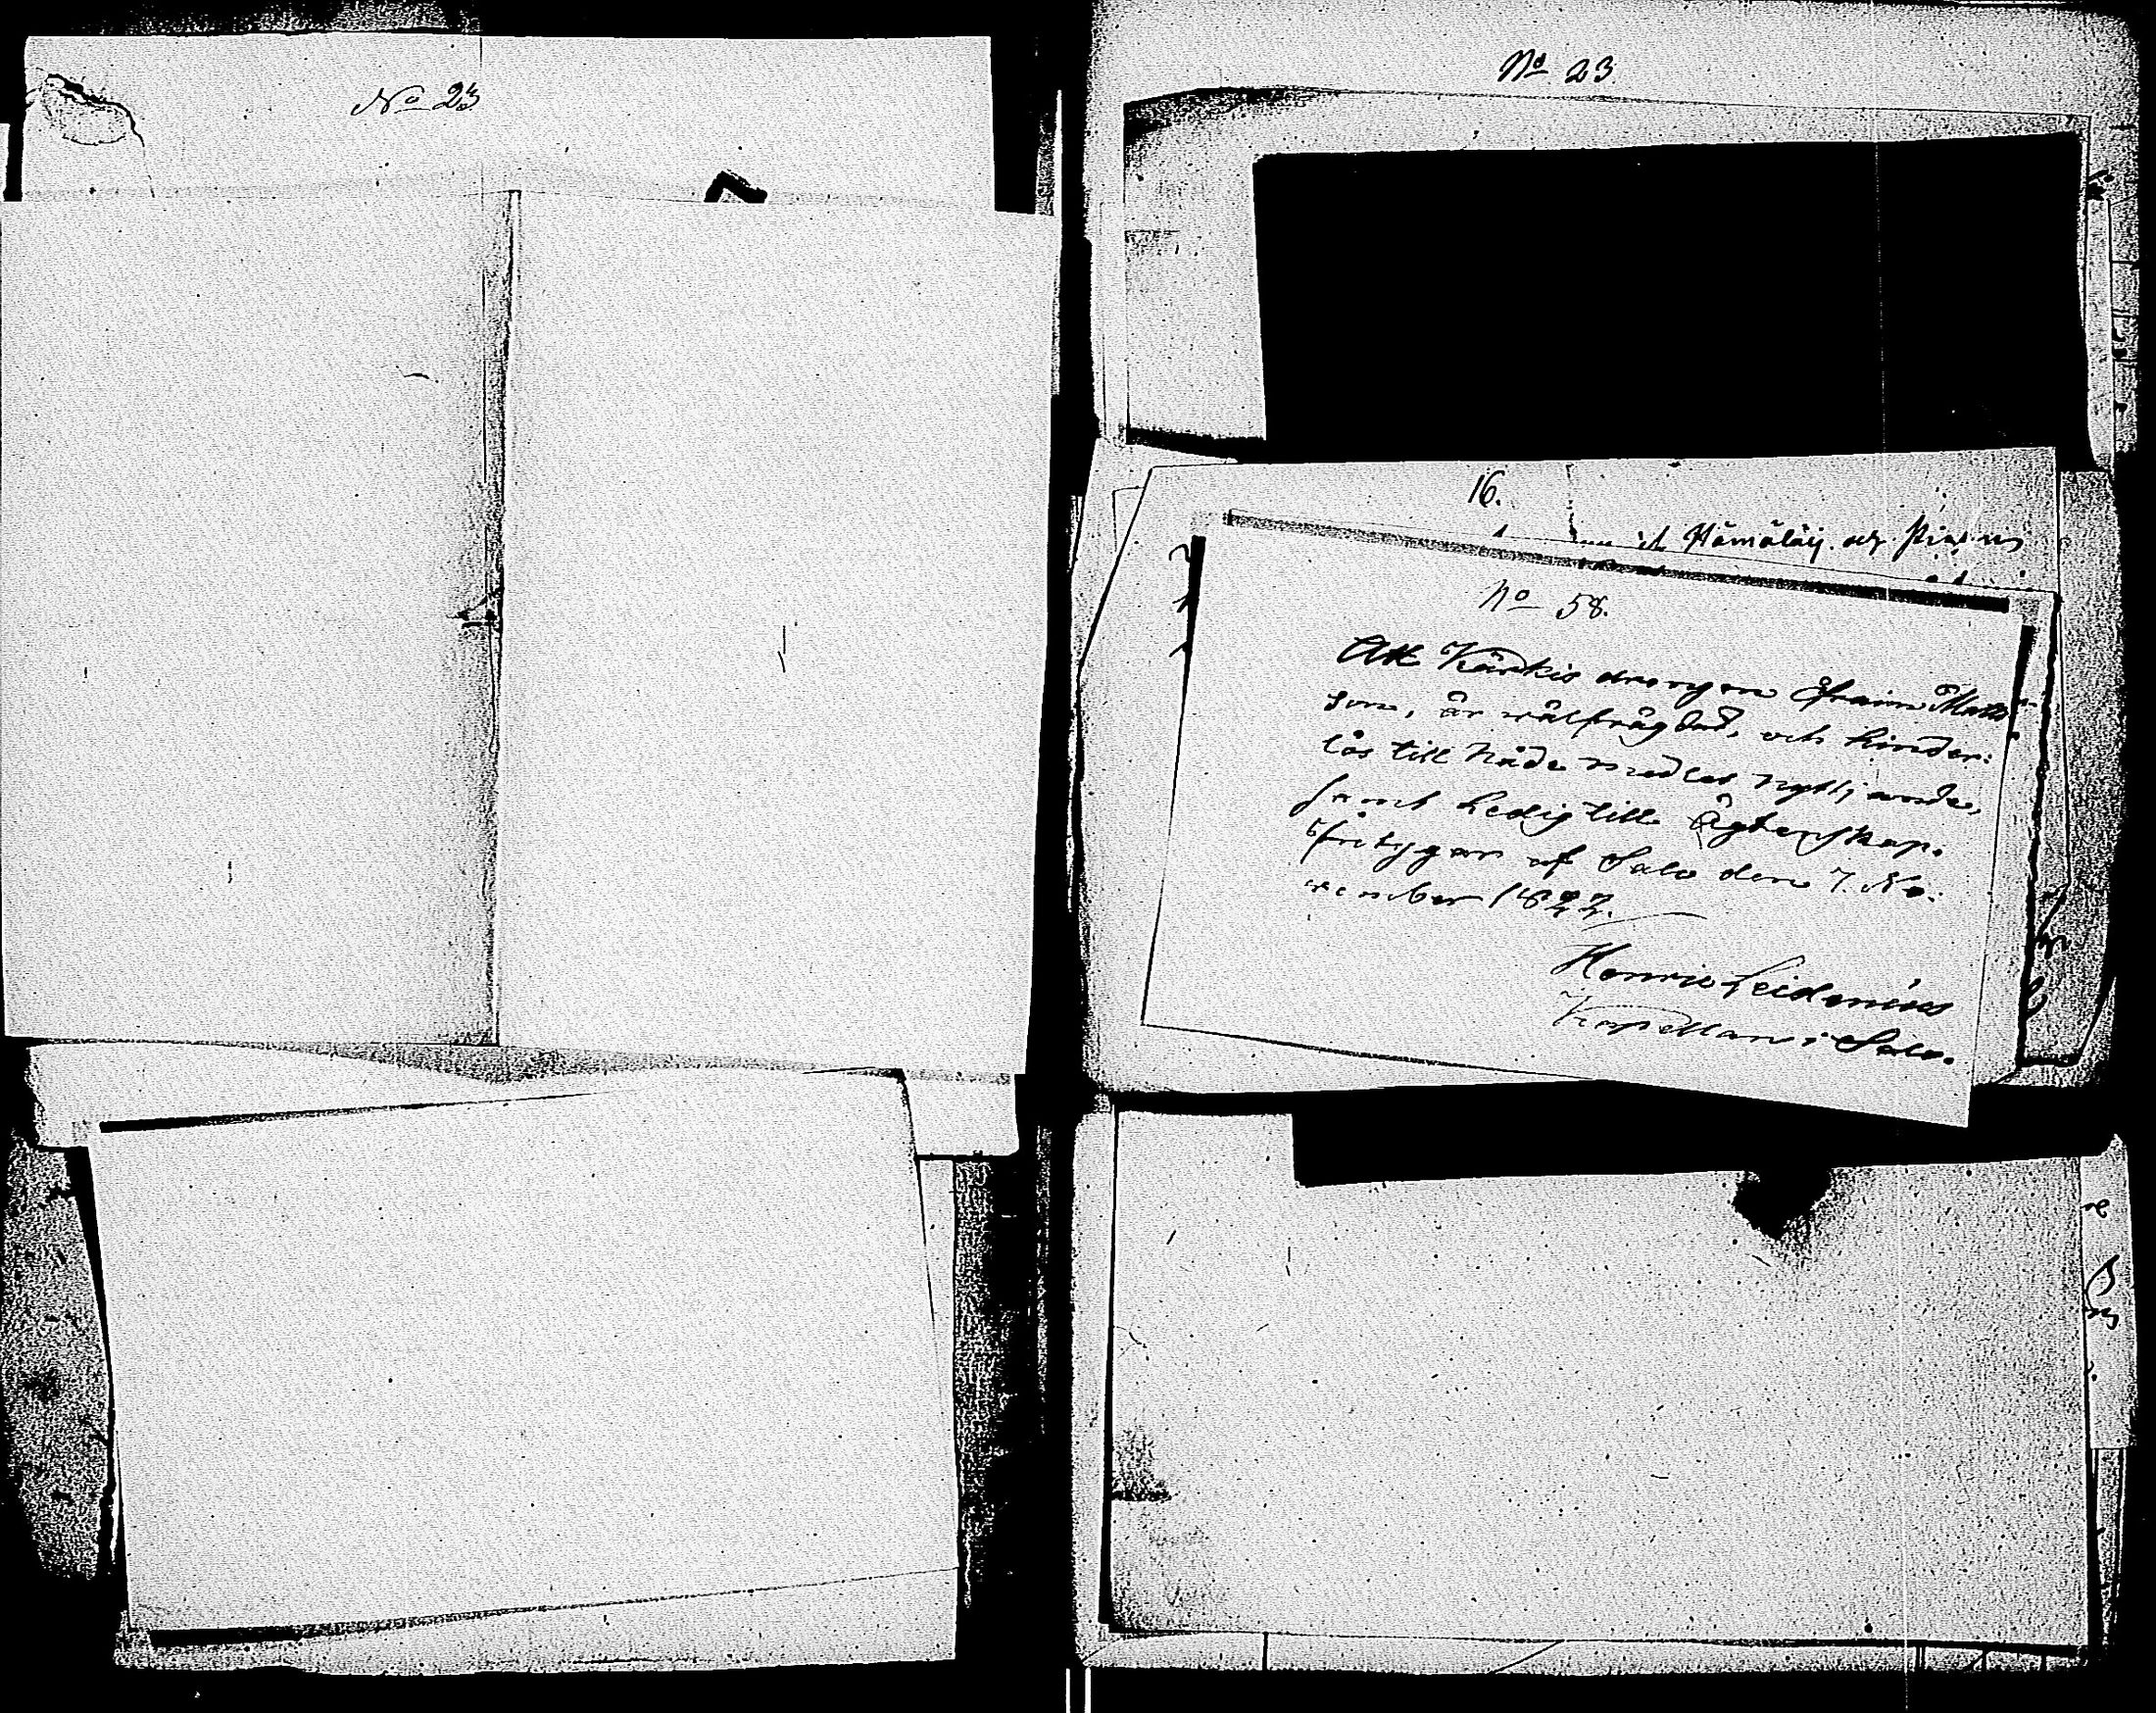 No 23
No 23
16.
Hämäläij. och
No 58.
Att Kärkis drängen Efraim Matts
son, är wälfrägdad, och hinder:
lös till Nåde medlens nyttjande,
samt Ledig till Ägtenskap.
Betygar af Salo den 7. No:
vember 1822.
Henric Leidenius
Kapellan i Salo.